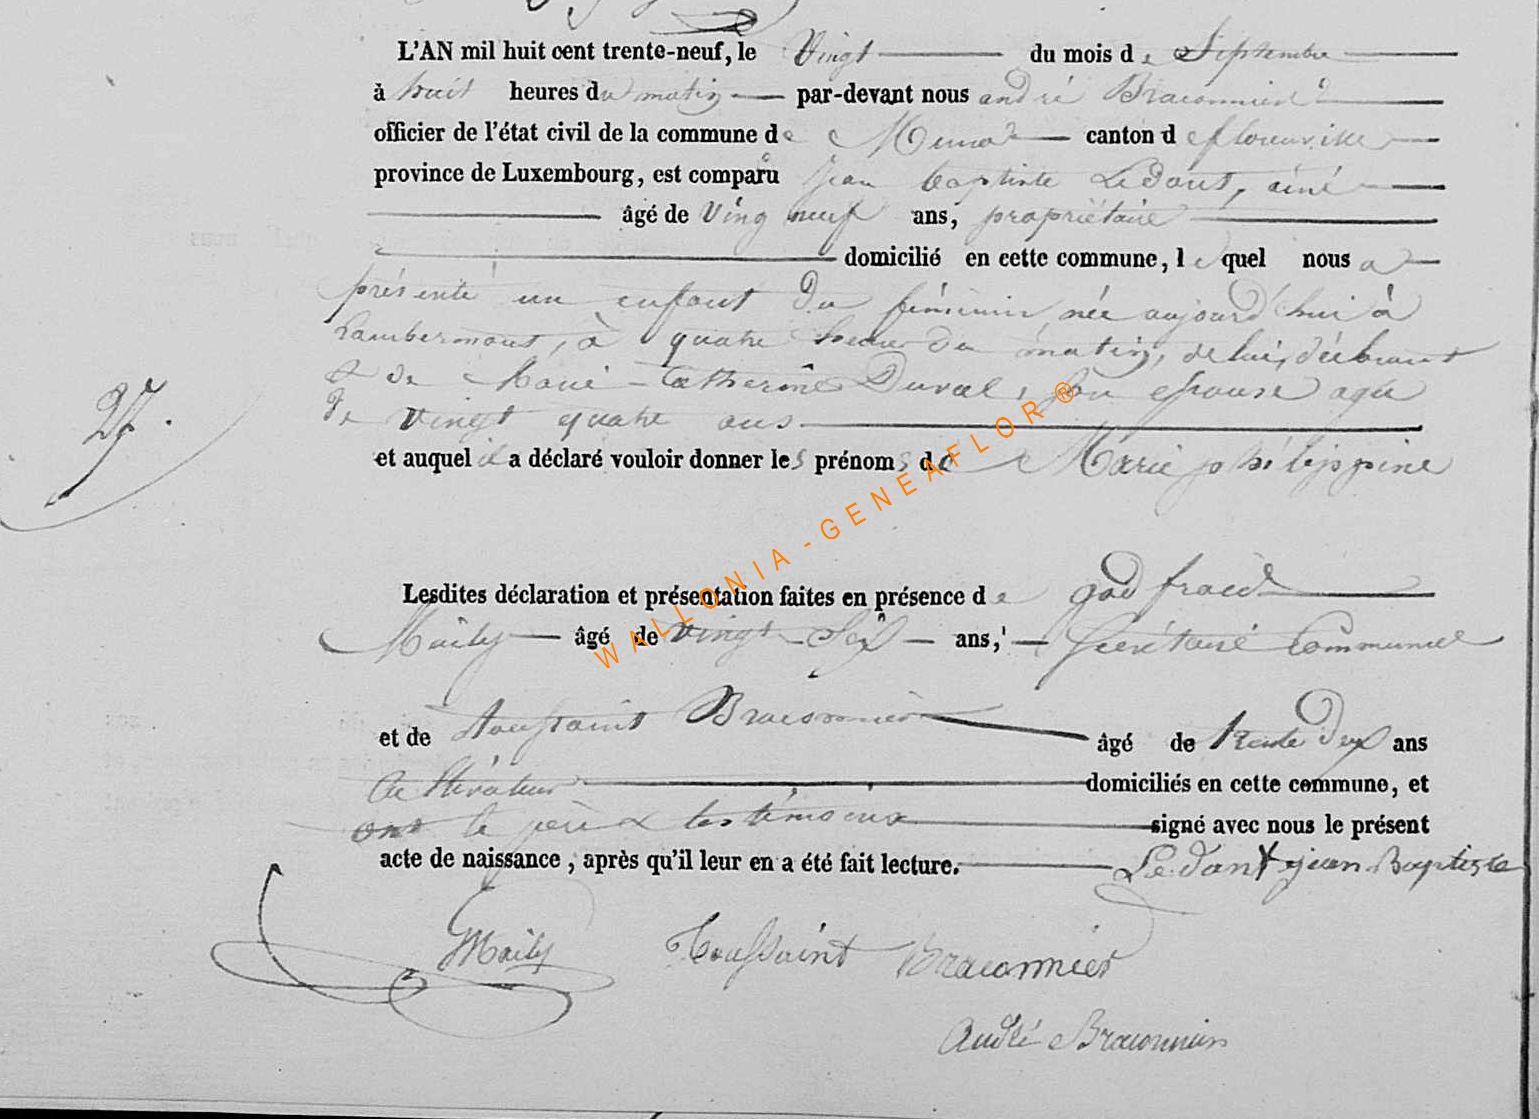 L'AN mil huit cent trente-neuf, le Vingt du mois de Septembre
à huit heures du matin par-devant nous andré Braconnier
officier de l'état civil de la commune de Muno canton de florenville
province de Luxembourg, est comparu jean baptiste Ledant, ainé
âgé de Ving neuf ans, propriétaire
domicilié en cette commune, lequel nous a
présenté un enfant du féminin née aujourd'hui à
Lambermont, à quatre heures du matin, de lui, déclarant
& de Marie Catherine Duval, son epouse agée
de vingt quatre ans
27.
et auquel il a déclaré vouloir donner les prénoms de Marie philippine
Lesdites déclaration et présentation faites en présence de godfroid
Maily âgé de vingt Six ans, Secrétaire Communal
et de toussaint Braconnier âgé de trente deux ans
Cultivateur domiciliés en cette commune, et
ont le père & les témoins signé avec nous le présent
acte de naissance, après qu'il leur en a été fait lecture. Ledant jean Baptiste
Maily Toussaint Braconnier
André Braconnier
WALLONIA-GENEAFLOR®